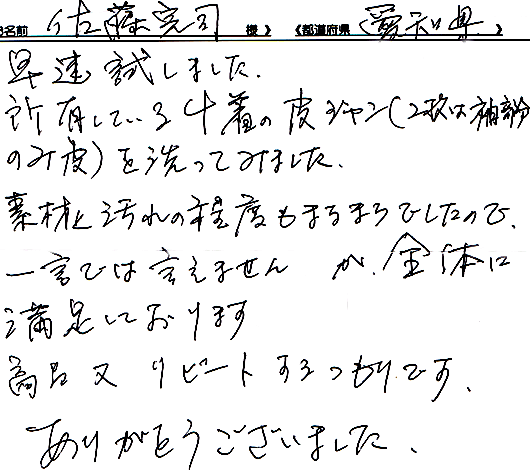 お名前 佐藤完司 様 》 《都道府県 愛知県 》
早速試しました.
所有している4着の皮ジャン(2枚は袖部分
のみ皮)を洗ってみました.
素材と汚れの程度もまちまちでしたので,
一言では言えません が、全体に
満足しております
商品又リピートするつもりです、
ありがとうございました、